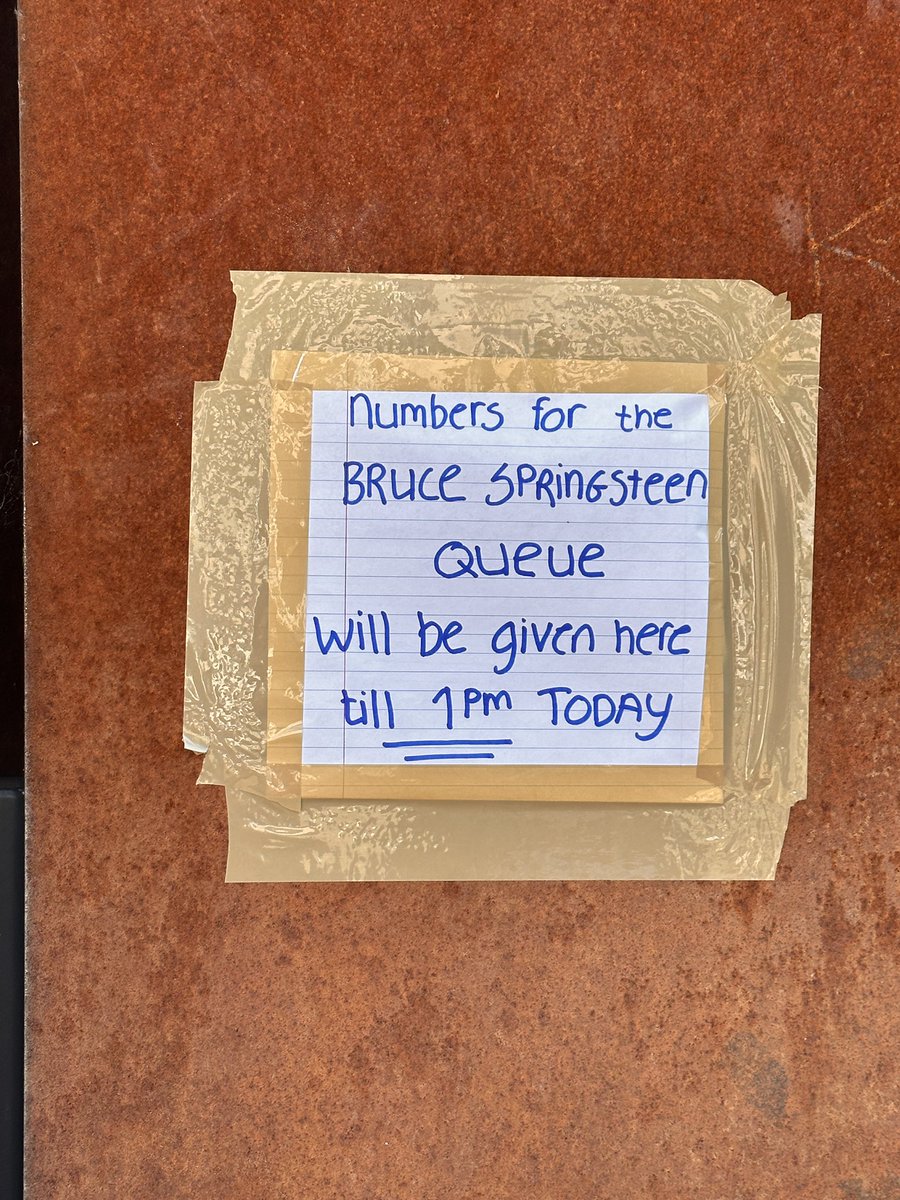 numbers for the
BRUCE SPRINGSTEEN
QUEUE
will be given here
till 1pm TODAY